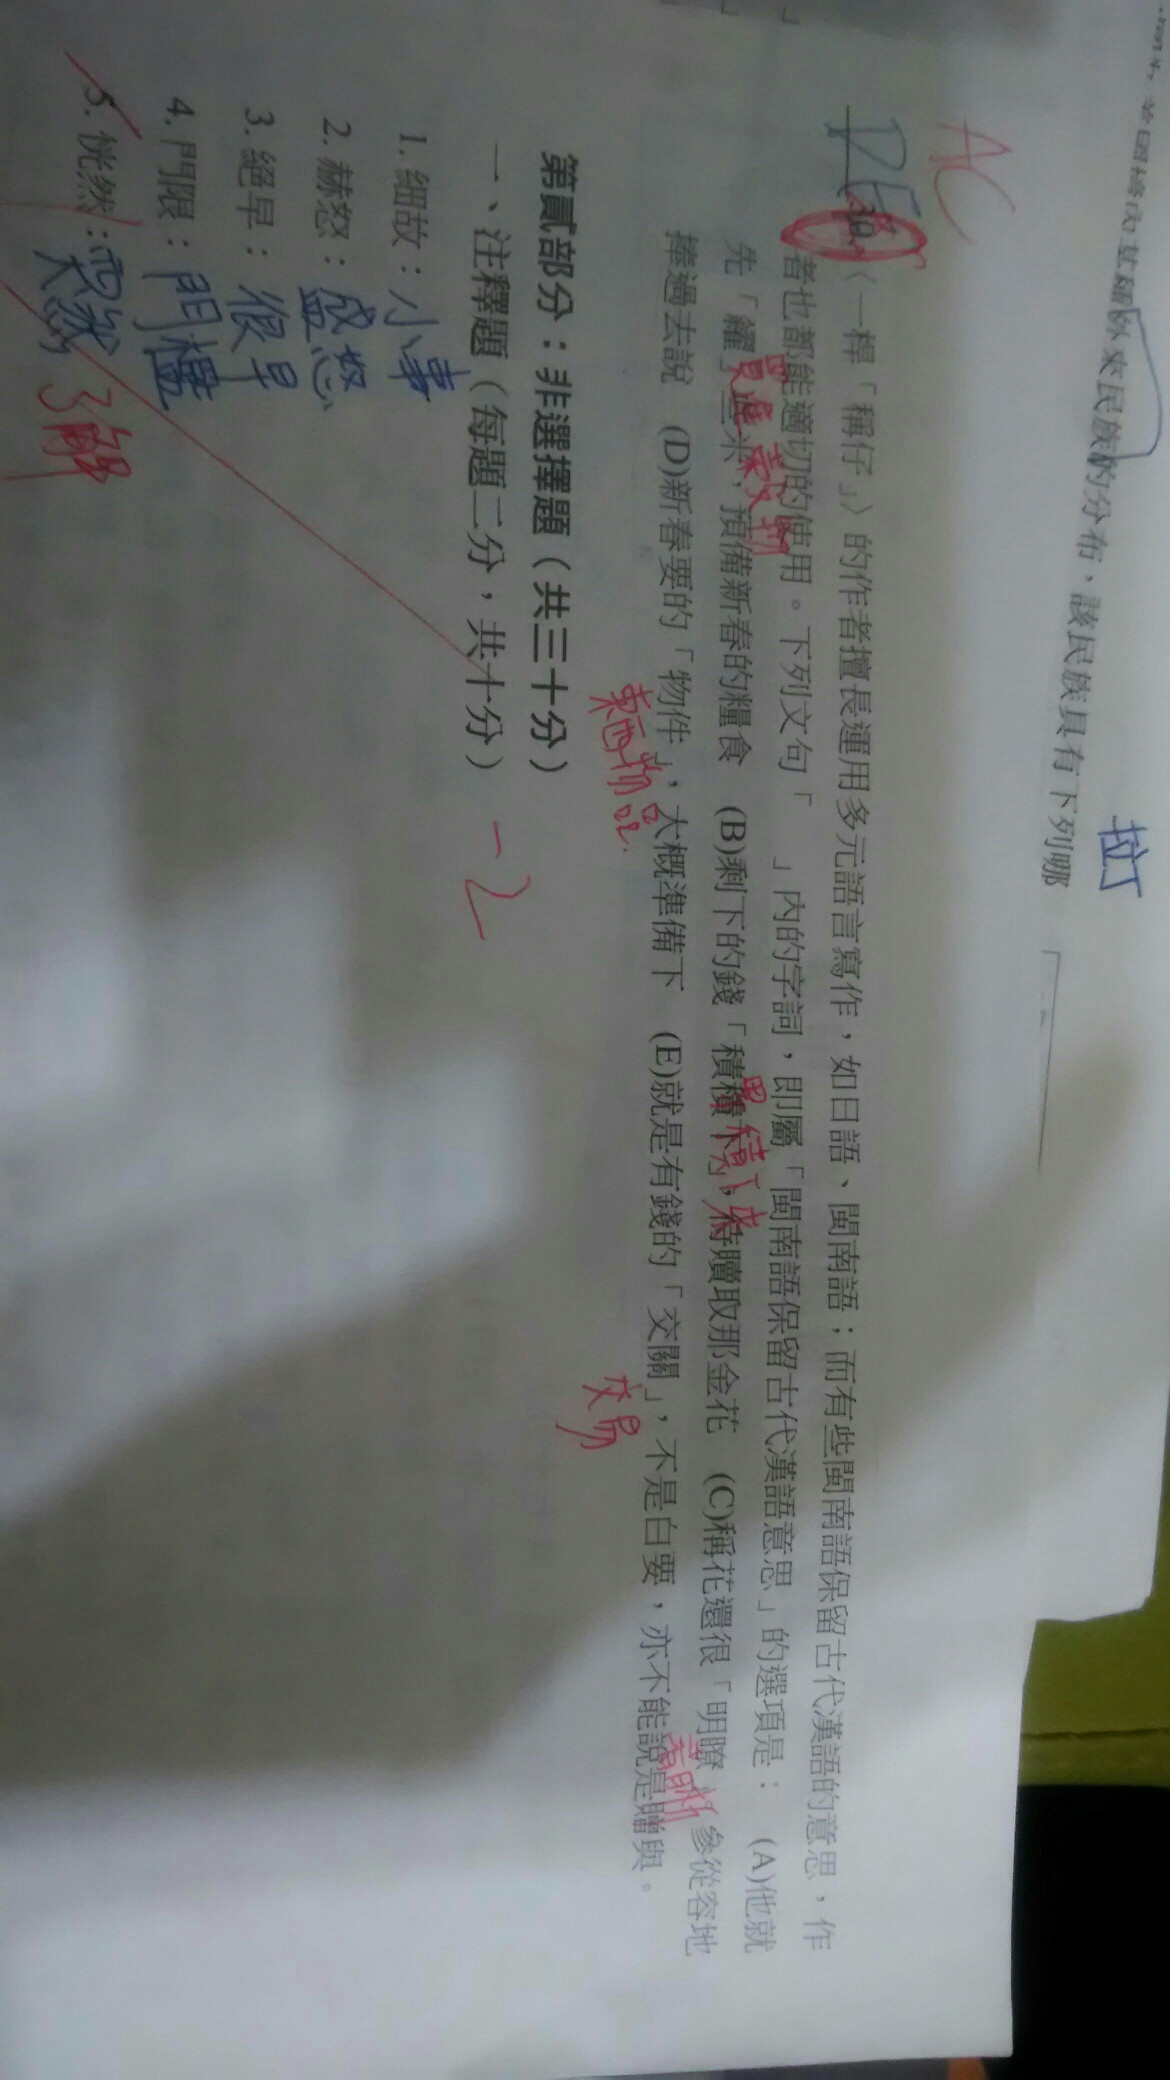 外來民族的分布，該民族具有下列哪
拉丁
AC
DE
30.〈一桿「稱仔」〉的作者擅長運用多元語言寫作，如日語、閩南語；而有些閩南語保留古代漢語的意思，作
者也都能適切的使用。下列文句「　」內的字詞，即屬「閩南語保留古代漢語意思」的選項是： (A)他就
先「糴」些米，預備新春的糧食 (B)剩下的錢「積積」，待贖取那金花 (C)稱花還很「明瞭」，參從容地
捧過去說 (D)新春要的「物件」，大概準備下 (E)就是有錢的「交關」，不是白要，亦不能說是贈與。
東西物品
交易
第貳部分：非選擇題（共三十分）
一、注釋題（每題二分，共十分） -2
1. 細故：小事
2. 赫怒：盛怒
3. 絕早：很早
4. 門限：門檻
5. 恍然：
了解